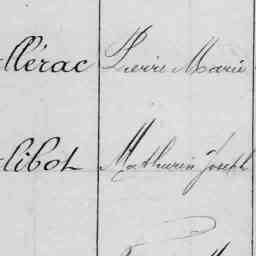 llérac Pierre Marie
libot Mathurin Joseph